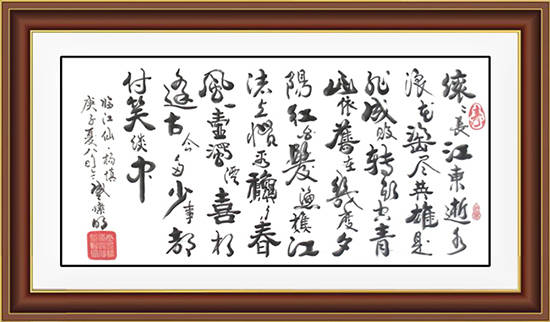 滚滚長江東逝水
浪花淘尽英雄是
非成敗轉头空青
山依舊在幾度夕
陽红白髮漁樵江
渚上惯看秋月春
風一壺濁酒喜相
逢古今多少事都
付笑谈中
临江仙·杨慎
庚子夏八旬